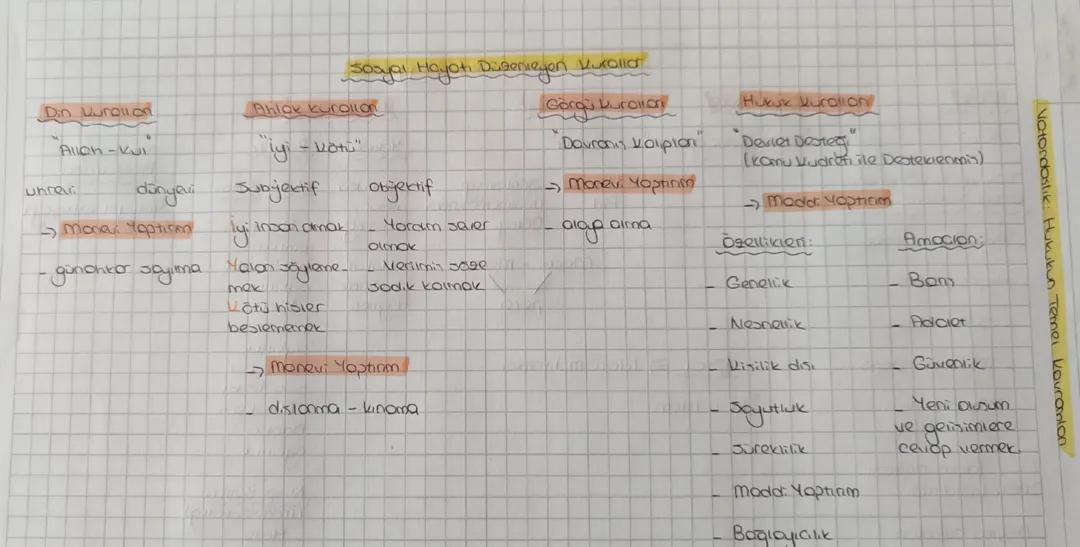 Sosyal Hayatı Düzenleyen Kurallar
Din Kuralları
"Allah-Kul"
uhrevi dünyevi
→ Manevi Yaptırım
- günahkar sayılma
Ahlak Kuralları
"iyi - kötü"
Subjektif objektif
İyi insan olmak
Yalan söyleme-
mek
Kötü hisler
beslememek
- Yardım sever
olmak
- Verilmiş söze
sadık kalmak
→ Manevi Yaptırım
- dışlanma - kınama
Görgü Kuralları
"Davranış Kalıpları"
→ Manevi Yaptırım
- ayıp olma
Hukuk Kuralları
"Devlet Desteği"
(Kamu Kudreti ile Desteklenmiş)
→ Maddi Yaptırım
Özellikleri:
- Genellik
- Nesnellik
- Kişilik dışı
- Soyutluk
- Süreklilik
- Maddi Yaptırım
- Bağlayıcılık
Amaçları:
- Barış
- Adalet
- Güvenlik
- Yeni durum
ve gelişimlere
cevap vermek
Vatandaşlık: Hukukun Temel Kavramları